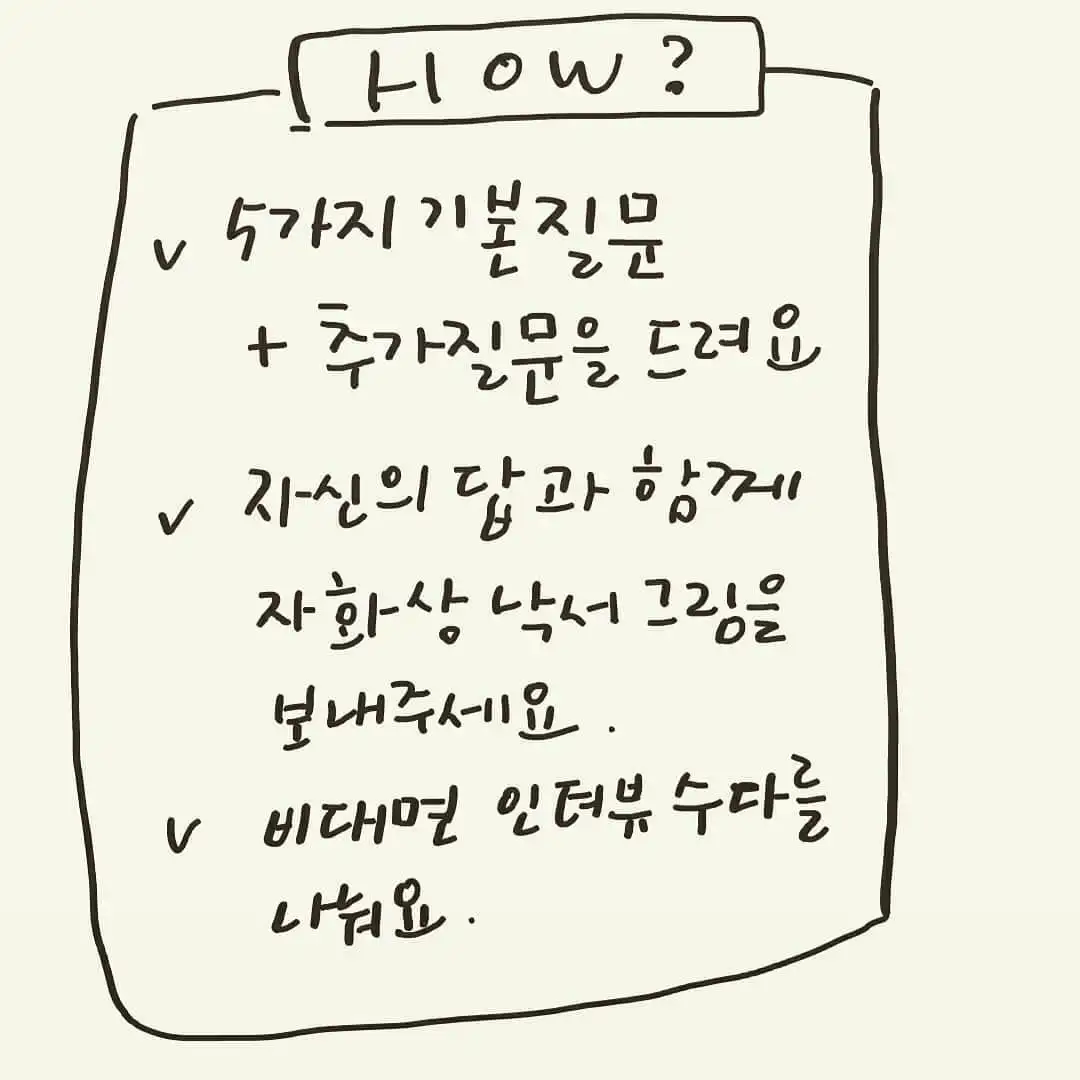 HOW?
✓ 5가지 기본질문
+ 추가질문을 드려요
✓ 자신의 답과 함께
자화상 낙서 그림을
보내주세요.
✓ 비대면 인터뷰 수다를
나눠요.